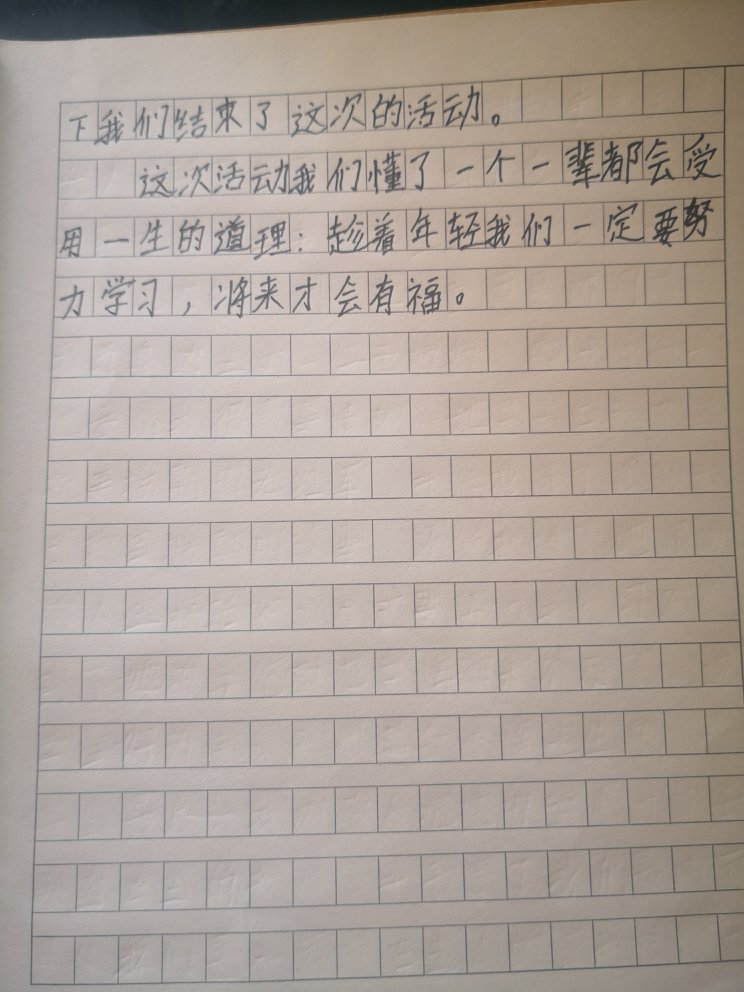 下我们结束了这次的活动。
这次活动我们懂了一个一辈都会受
用一生的道理：趁着年轻我们一定要努
力学习，将来才会有福。